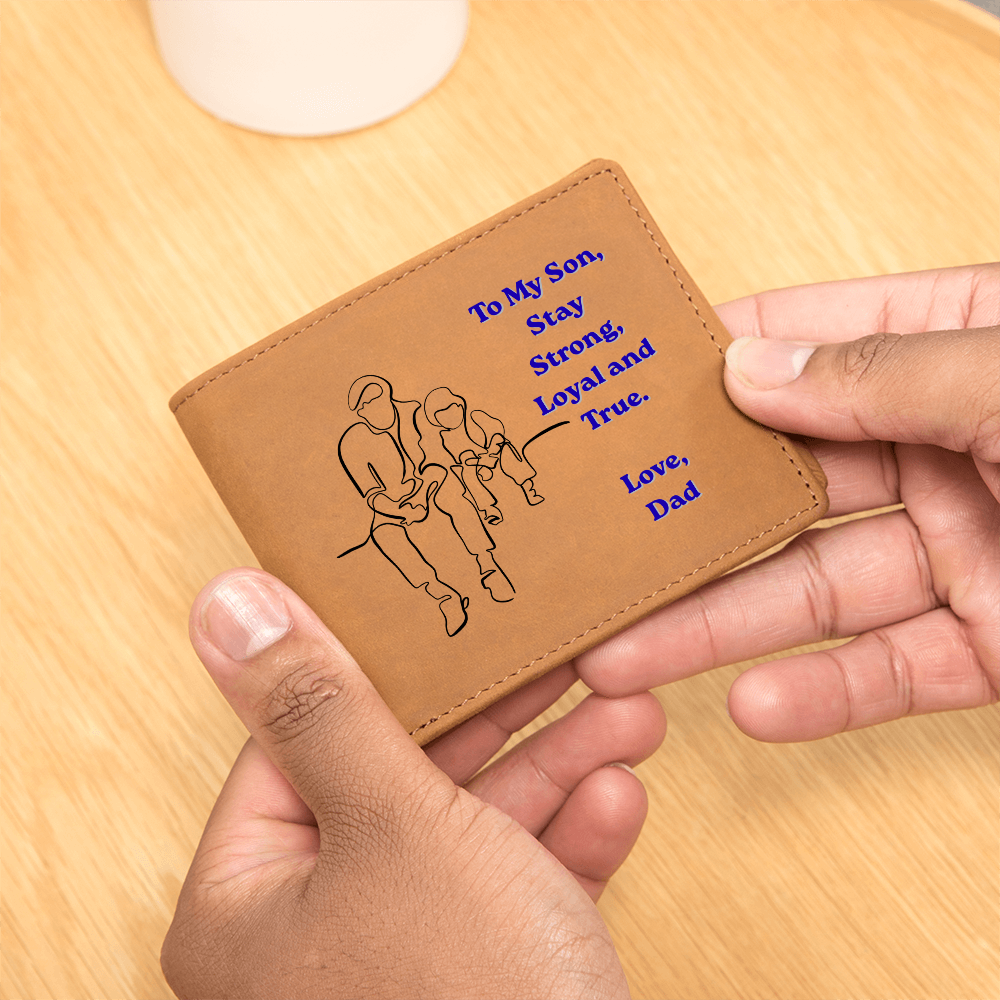 To My Son,
Stay
Strong,
Loyal and
True.
Love,
Dad